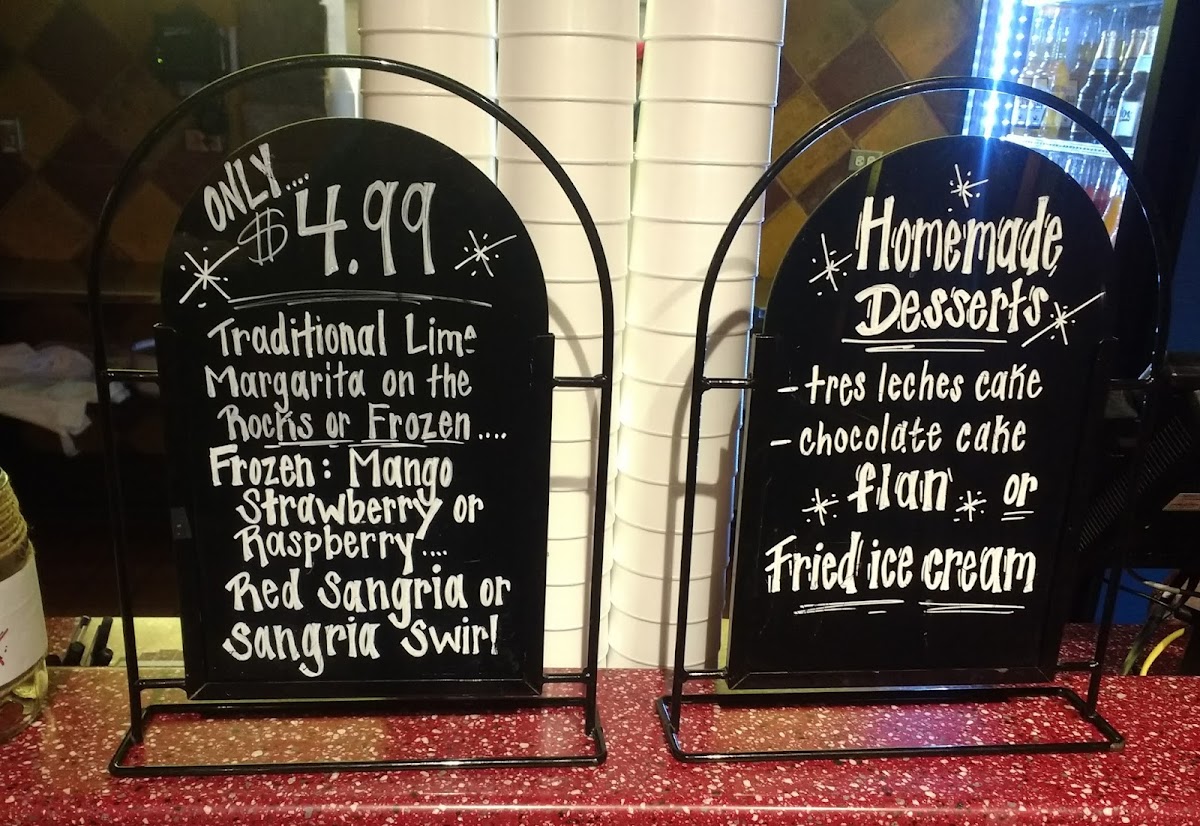 ONLY....
$4.99
Traditional Lime
Margarita on the
Rocks or Frozen....
Frozen: Mango
Strawberry or
Raspberry....
Red Sangria or
Sangria Swirl
Homemade
Desserts
- tres leches cake
- chocolate cake
flan or
Fried ice cream